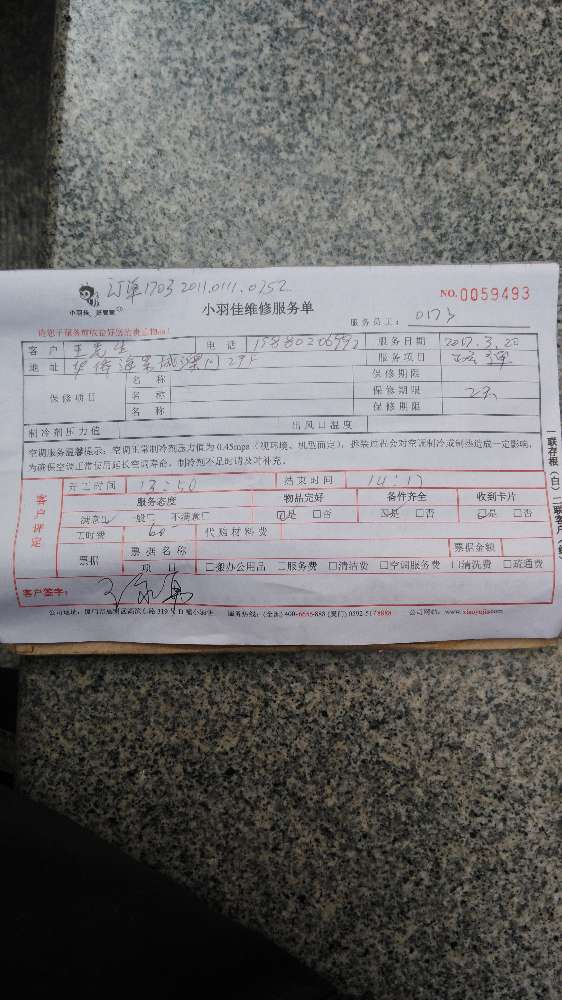 订单1703 2011.0111.0752
小羽佳 好管家
小羽佳维修服务单
NO.0059493
服务员工：
客户 王先生 电话 服务日期 2017.3.20
地址 服务项目
保修项目 名称 保修期限
名称 保修期限
名称 保修期限
制冷剂压力值 出风口温度
空调服务温馨提示：空调正常制冷剂压力值为0.45mpa（视环境、机型而定），拆装过程会对空调制冷或制热造成一定影响，
为确保空调正常使用延长空调寿命，制冷剂不足时请及时补充。
客户评定
开工时间 13:50 结束时间 14:17
服务态度 物品完好 备件齐全 收到卡片
满意☑ 一般□ 不满意□ ☑是 □否 ☑是 □否 ☑是 □否
工时费 60 代购材料费
票据 票据名称 票据金额
项目 □一般办公用品 □服务费 □清洁费 □空调服务费 □清洗费 □疏通费
客户签字：
服务热线：(全国) 400-6656-888 (厦门) 0592-5178888 公司网站：www.xiaoyujia.com
一联存根（白）二联客户（红